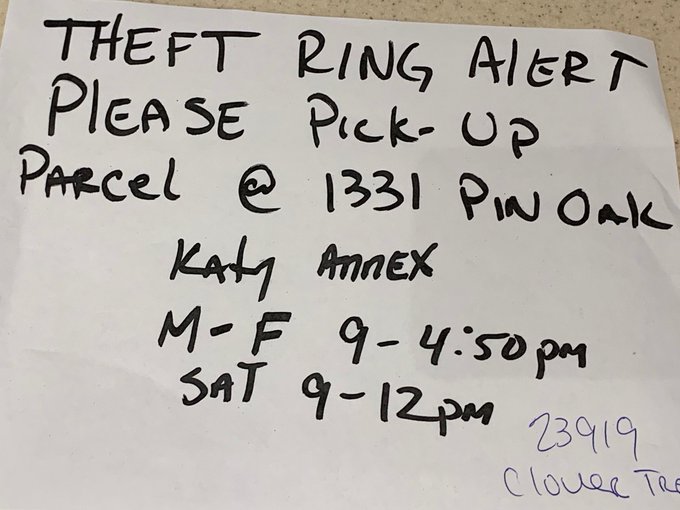 THEFT RING ALERT
PLEASE PICK-UP
PARCEL @ 1331 PIN OAK
KATY ANNEX
M-F 9-4:50pm
SAT 9-12pm
23919
Clover Tre